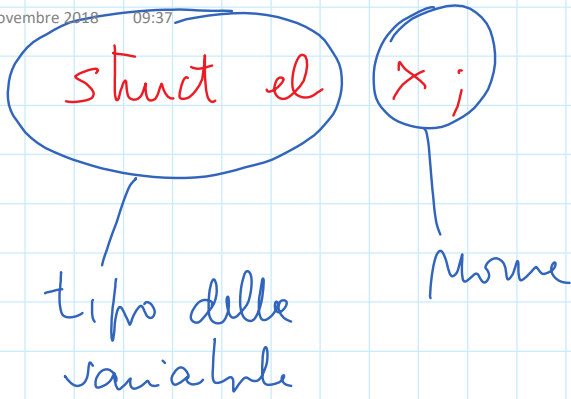 ovembre 2018 09:37
struct el x;
tipo della nome
variabile